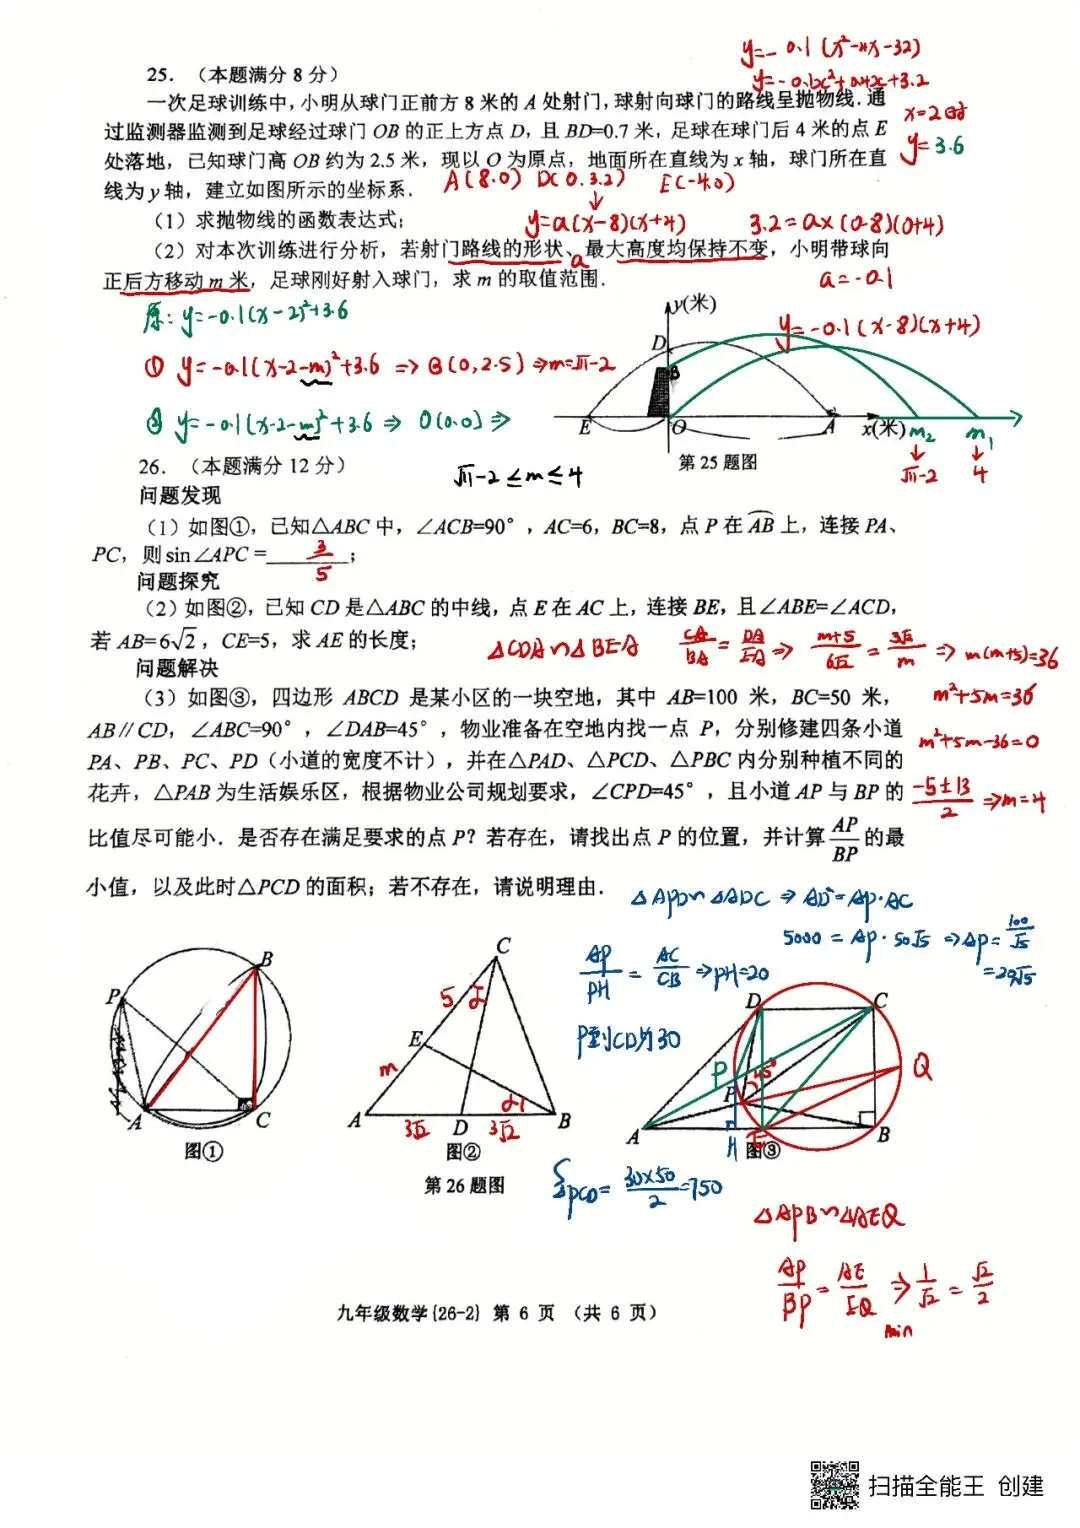 y=-0.1(x²-4x-32)
25. （本题满分 8 分）
y=-0.1x²+0.4x+3.2
一次足球训练中，小明从球门正前方 8 米的 A 处射门，球射向球门的路线呈抛物线．通
x=2时
过监测器监测到足球经过球门 OB 的正上方点 D，且 BD=0.7 米，足球在球门后 4 米的点 E
y=3.6
处落地，已知球门高 OB 约为 2.5 米，现以 O 为原点，地面所在直线为 x 轴，球门所在直
线为 y 轴，建立如图所示的坐标系．
A(8.0) D(0.3.2) E(-4.0)
（1）求抛物线的函数表达式；
y=a(x-8)(x+4) 3.2=a×(0-8)(0+4)
（2）对本次训练进行分析，若射门路线的形状、最大高度均保持不变，小明带球向
a
正后方移动 m 米，足球刚好射入球门，求 m 的取值范围．
a=-0.1
原：y=-0.1(x-2)²+3.6
y(米)
y=-0.1(x-8)(x+4)
D
① y=-0.1(x-2-m)²+3.6 ⇒ B(0,2.5) ⇒m=√11-2
B
② y=-0.1(x-2-m)²+3.6 ⇒ O(0.0) ⇒
E O A x(米) m₂ m₁
√11-2 4
第 25 题图
26. （本题满分 12 分）
√11-2≤m≤4
问题发现
（1）如图①，已知△ABC 中，∠ACB=90°，AC=6，BC=8，点 P 在 AB 上，连接 PA、
PC，则 sin∠APC = 3/5 ；
问题探究
（2）如图②，已知 CD 是△ABC 的中线，点 E 在 AC 上，连接 BE，且∠ABE=∠ACD，
若 AB=6√2，CE=5，求 AE 的长度；
△CDA∽△BEA CA/BA=DA/EA⇒ m+5/6√2=3√2/m ⇒ m(m+5)=36
问题解决
（3）如图③，四边形 ABCD 是某小区的一块空地，其中 AB=100 米，BC=50 米，
m²+5m=36
AB∥CD，∠ABC=90°，∠DAB=45°，物业准备在空地内找一点 P，分别修建四条小道
m²+5m-36=0
PA、PB、PC、PD（小道的宽度不计），并在△PAD、△PCD、△PBC 内分别种植不同的
花卉，△PAB 为生活娱乐区，根据物业公司规划要求，∠CPD=45°，且小道 AP 与 BP 的
-5±13/2 ⇒m=4
比值尽可能小．是否存在满足要求的点 P？若存在，请找出点 P 的位置，并计算 AP/BP 的最
小值，以及此时△PCD 的面积；若不存在，请说明理由．
△APD∽△ADC ⇒ AD²=AP·AC
5000=AP·50√5 ⇒AP=100/√5
=20√5
AP/PH=AC/CB⇒PH=20
P到CD为30
B
P
A C
图①
C
5 2
E
m
A D B
3√2 3√2
图②
D C
P 45° Q
P
A H E B
图③
第 26 题图
S△PCD=30×50/2=750
△APB∽△AEQ
AP/BP=AE/EQ⇒1/√2=√2/2
min
九年级数学{26-2} 第 6 页 （共 6 页）
扫描全能王 创建